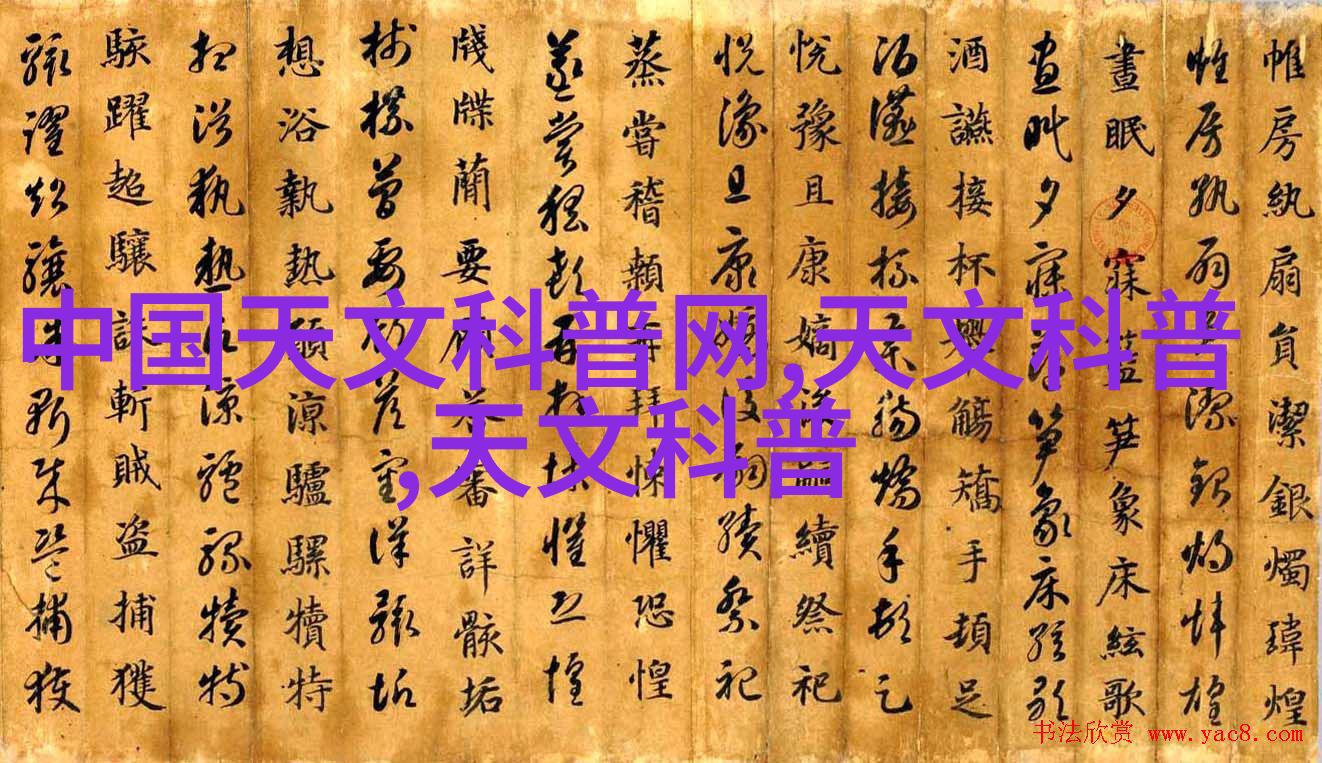 中国天文科普网,天文科普
,天文科普
帷房紈扇負潔銀燭瑋煌
帷房紈扇負潔銀燭瑋煌
晝眠夕寐藍笋象床絃歌
晝眠夕寐藍笋象床絃歌
酒讌接杯舉觴矯手頓足
酒讌接杯舉觴矯手頓足
悅豫且康嫡後嗣續祭祀
悅豫且康嫡後嗣續祭祀
蒸嘗稽顙再拜悚懼恐惶
蒸嘗稽顙再拜悚懼恐惶
牋牒蕑要顧答審詳骸垢
牋牒蕑要顧答審詳骸垢
想浴執熱願涼驢騾犢特
想浴執熱願涼驢騾犢特
駭躍超驤誅斬賊盜捕獲
駭躍超驤誅斬賊盜捕獲
书法欣赏 www.yac8.com